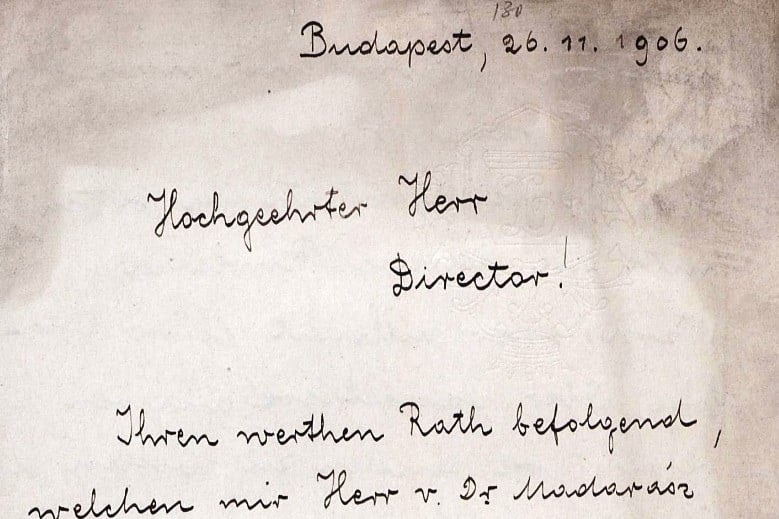 130
Budapest, 26. 11. 1906.
Hochgeehrter Herr
Director!
Ihren werthen Rath befolgend,
welchen mir Herr v. Dr Madarász